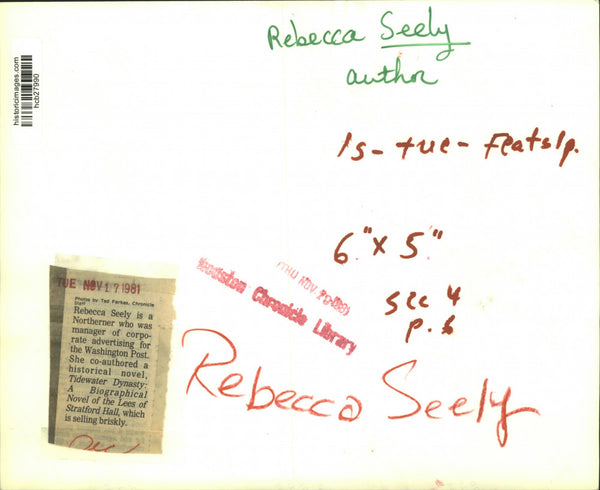 historicimages.com
hcb27990
Rebecca Seely
author
1s - tue - Featslp.
6" x 5"
sec 4
p. 6
THU NOV
Houston Chronicle Library
TUE NOV 17 1981
Photos by Ted Farkas, Chronicle
Staff
Rebecca Seely is a
Northerner who was
manager of corpo-
rate advertising for
the Washington Post.
She co-authored a
historical novel,
Tidewater Dynasty:
A Biographical
Novel of the Lees of
Stratford Hall, which
is selling briskly.
Rebecca Seely